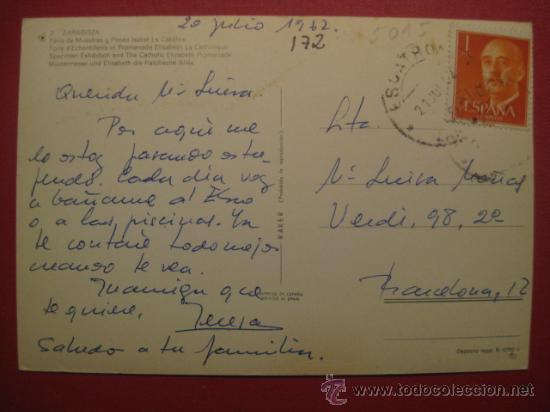 20 julio 1962.
172
5015
2. ZARAGOZA
Feria de Muestras y Paseo Isabel La Católica
Foire d'Echantillons et Promenade Elisabeth La Catholique
Specimen Exhibition and The Catholic Elizabeth Promenade
Mustermesse und Elisabeth die Katolische Allée
ESCATRON
1
ESPAÑA
Querida Mª Luisa
Por aquí me
lo estoy pasando estu-
pendo. Cada día voy
a bañarme al Ebro
o a las piscinas. Ya
te contaré todo mejor
cuando te vea.
Tu amiga que
te quiere,
Teresa
Saludo a tu familia.
RAKER (Prohibida la reproducción)
Srta.
Mª Luisa
Verdi, 98, 2º
Barcelona, 12
Depósito legal B.
todocoleccion.net